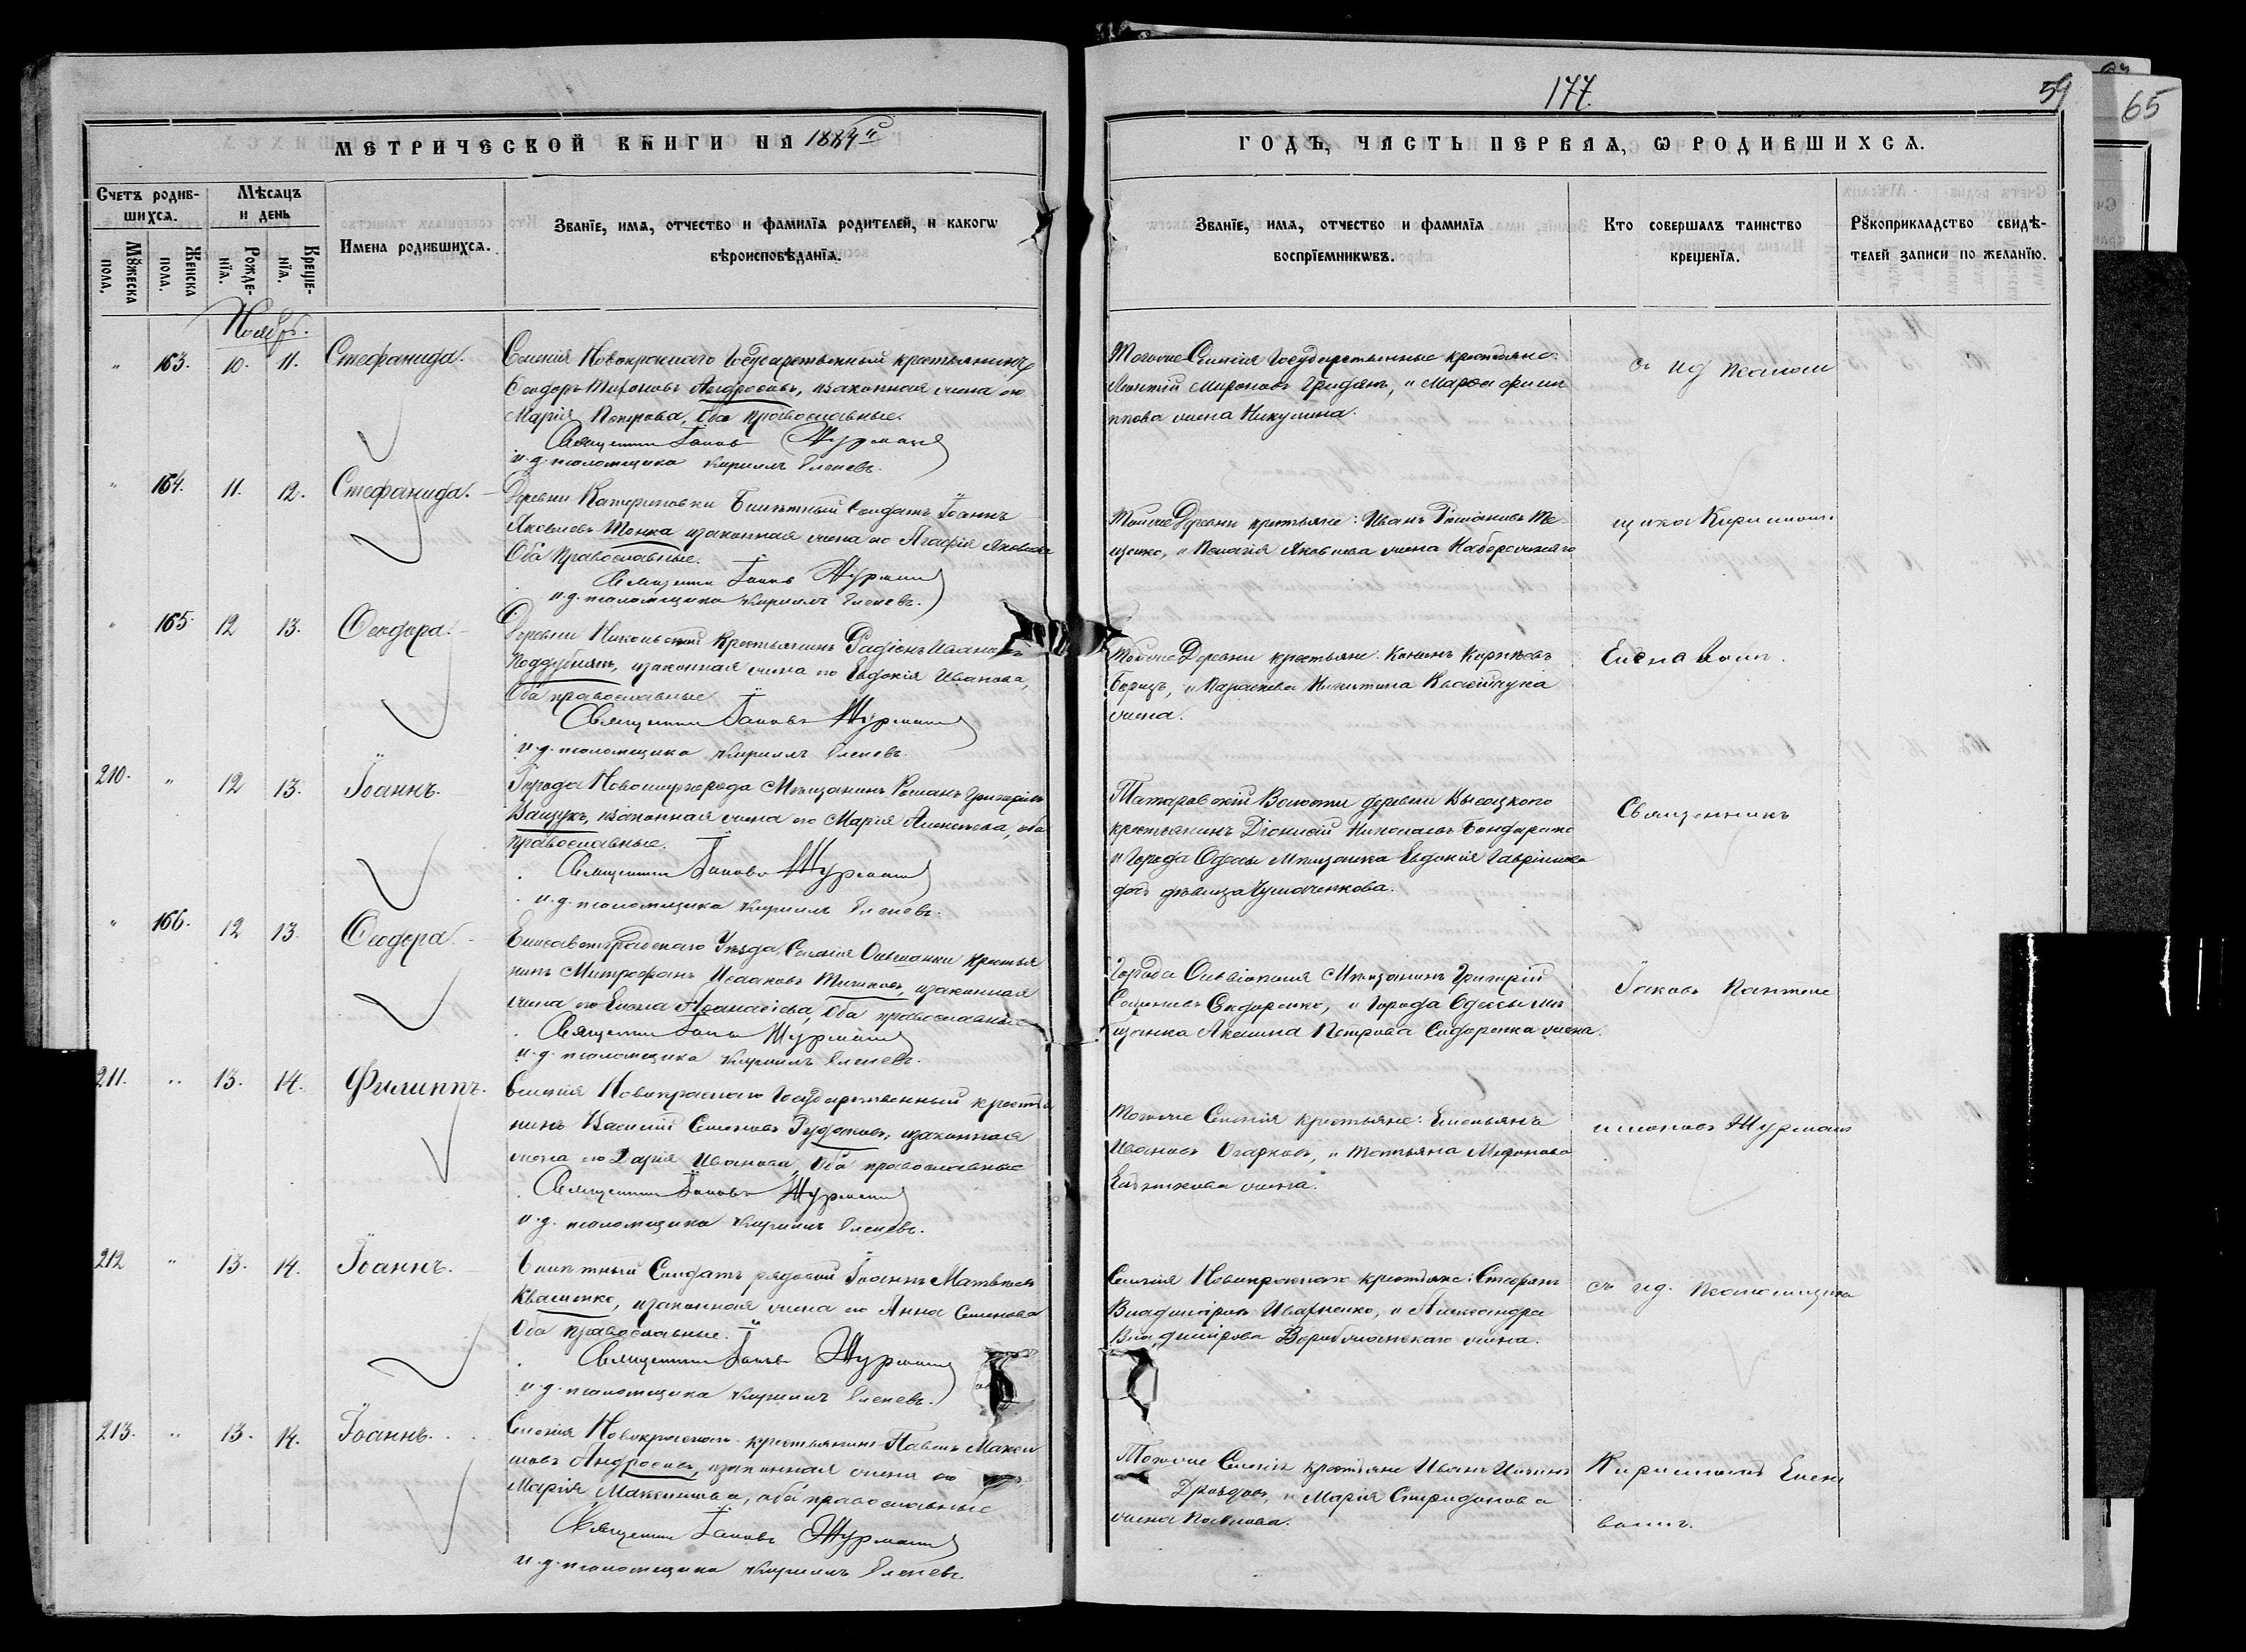 177.
59
65
МЕТРИЧЕСКОЙ КНИГИ НА 1889й
ГОДЪ, ЧАСТЬ ПЕРВАЯ, Ѡ РОДИВШИХСЯ.
Счетъ родившихся.
Мꙋжеска пола.
Женска пола.
Мѣсяцъ и день
Рожденїя.
Крещенїя.
Имена родившихся.
Званїе, имя, отчество и фамилїя родителей, и какогѡ
вѣроисповѣданїя.
Званїе, имя, отчество и фамилїя
воспрїемникѡвъ.
Кто совершалъ таинство
крещенїя.
Рꙋкоприкладство свидѣ-
телей записи по желанїю.
Ноябрь.
" 163. 10. 11. Стефанида.
Селенія Новокраснаго Государственный крестьянинъ
Ѳеодоръ Тихоновъ Андросовъ, изаконная жена его
Марія Петрова, Оба православные.
Священникъ Іаковъ Журманъ
и.д. псаломщика Кириллъ Еленевъ.
Тогоже Селенія Государственные крестьяне:
Леонтій Мироновъ Гридинъ, и Марѳа Филип
пова жена Никулина.
съ ид псалом
" 164. 11. 12. Стефанида.
Деревни Катериновки Билетный Солдатъ Іоаннъ
Яковлевъ Тонка изаконная жена его Агафія Яковлева
Оба Православные.
Священникъ Іаковъ Журманъ
и.д. псаломщика Кириллъ Еленевъ.
Тойже Деревни крестьяне: Иванъ
щенко, и Пелагія Яковлева жена
щика Кирилломъ
" 165. 12 13. Ѳеодора.
Деревни Никольской Крестьянинъ Радіонъ Ивановъ
Поддубнякъ, изаконная жена его Евдокія Иванова,
Оба православные
Священникъ Іаковъ Журманъ
и.д. псаломщика Кириллъ Еленевъ.
Тойже Деревни крестьяне: Кононъ Корнѣевъ
и Параскева Никитина Квасничука
жена.
Еленевымъ.
210. " 12 13. Іоаннъ.
Города Новомиргорода Мѣщанинъ Романъ Григорьевъ
Ващукъ, изаконная жена его Марія Алексѣева, оба
православные.
Священникъ Іаковъ Журманъ
и.д. псаломщика Кириллъ Еленевъ.
Татаровской Волости деревни Высоцкого
крестьянинъ Діонисій Николаевъ Бондаренко
и Города Одессы Мѣщанка Евдокія Гаврилова
дѣвица Чумаченкова.
Священникъ
" 166. 12 13. Ѳеодора.
Елисаветградскаго Уѣзда, Селенія Ольшанки Крестья
нинъ Митрофанъ Исааковъ Тишковъ, изаконная
жена его Елена Аѳанасіева, Оба православные
Священникъ Іаковъ Журманъ
и.д. псаломщика Кириллъ Еленевъ.
Города Ольвіополя Мѣщанинъ Григорій
Семеновъ Сидоренко, и Города Одессы мѣ
щанка Акилина Петрова Сидоренка жена.
Іаковъ Пантеле
211. " 13. 14. Филиппъ.
Селенія Новокраснаго Государственный крестья
нинъ Василій Семеновъ Рудаковъ, изаконная
жена его Дарія Иванова, Оба православные
Священникъ Іаковъ Журманъ
и.д. псаломщика Кириллъ Еленевъ.
Тогоже Селенія крестьяне: Емельянъ
Ивановъ Огарковъ, и Татьяна Миронова
жена.
имоновъ Журманъ
212 " 13. 14. Іоаннъ.
Билетный Солдатъ рядовой Іоаннъ Матвѣевъ
Квашенко, изаконная жена его Анна Семенова
Оба православные.
Священникъ Іаковъ Журманъ
и.д. псаломщика Кириллъ Еленевъ.
Селенія Новокраснаго крестьяне: Стефанъ
Владиміровъ Иващенко, и Александра
Владимірова жена.
съ ид. псаломщика
213. " 13. 14. Іоаннъ.
Селенія Новокраснаго крестьянинъ Павелъ Макси
мовъ Андросовъ, изаконная жена его
Марія Максимова, оба православные
Священникъ Іаковъ Журманъ
и.д. псаломщика Кириллъ Еленевъ.
Тогоже Селенія крестьяне Иванъ
Дроздовъ, и Марія Спиридонова
жена Павлова.
Кирилломъ Елене
вымъ.